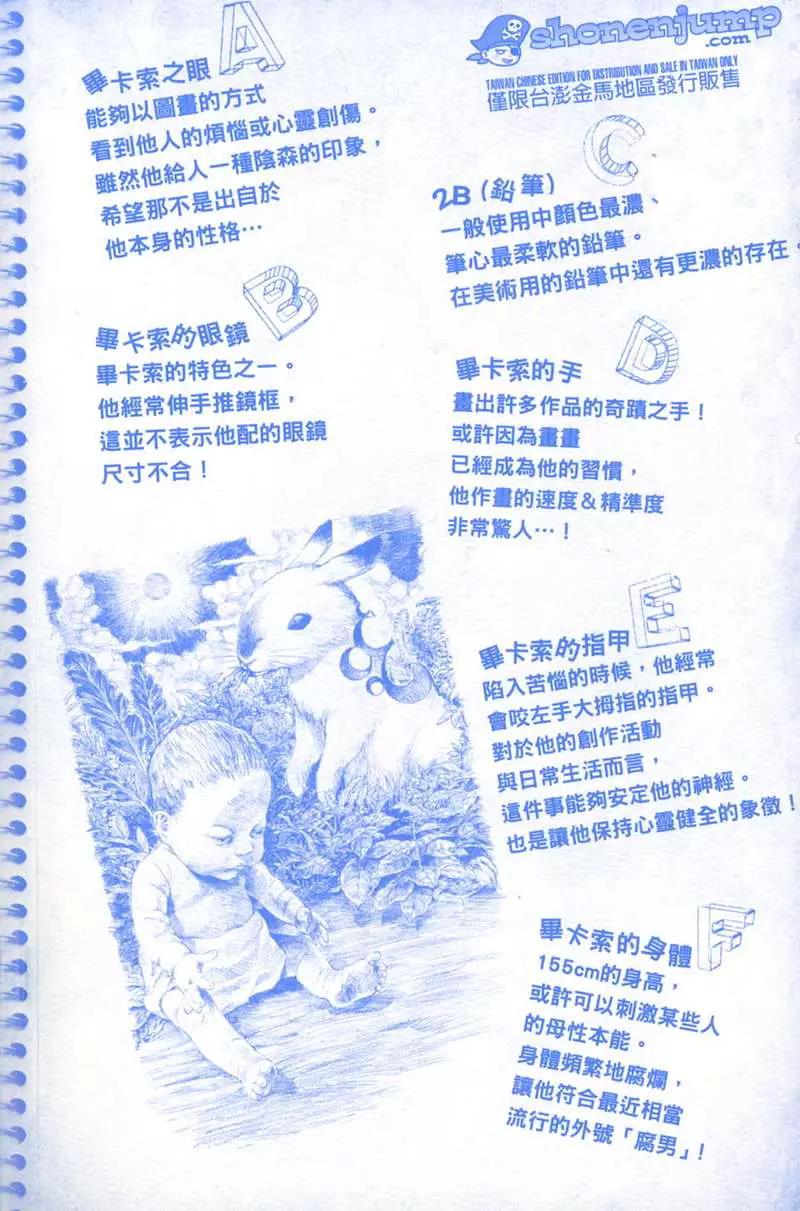 A
畢卡索之眼
能夠以圖畫的方式
看到他人的煩惱或心靈創傷。
雖然他給人一種陰森的印象，
希望那不是出自於
他本身的性格…
B
畢卡索的眼鏡
畢卡索的特色之一。
他經常伸手推鏡框，
這並不表示他配的眼鏡
尺寸不合！
shonenjump
.com
TAIWAN CHINESE EDITION FOR DISTRIBUTION AND SALE IN TAIWAN ONLY
僅限台澎金馬地區發行販售
C
2B（鉛筆）
一般使用中顏色最濃、
筆心最柔軟的鉛筆。
在美術用的鉛筆中還有更濃的存在。
D
畢卡索的手
畫出許多作品的奇蹟之手！
或許因為畫畫
已經成為他的習慣，
他作畫的速度＆精準度
非常驚人…！
E
畢卡索的指甲
陷入苦惱的時候，他經常
會咬左手大拇指的指甲。
對於他的創作活動
與日常生活而言，
這件事能夠安定他的神經。
也是讓他保持心靈健全的象徵！
F
畢卡索的身體
155cm的身高，
或許可以刺激某些人
的母性本能。
身體頻繁地腐爛，
讓他符合最近相當
流行的外號「腐男」！